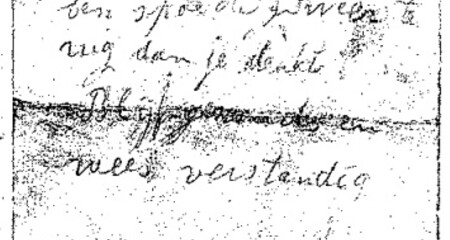 ben spoedig weer te
rug dan je denkt!
Blijf gezond en
wees verstandig